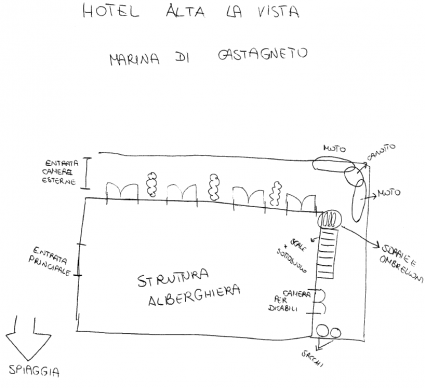 HOTEL ALTA LA VISTA
MARINA DI CASTAGNETO
MOTO
CANOTTO
ENTRATA
CAMERE
ESTERNE
MOTO
SCALE
+
SOTTOSUOLO
SDRAIE E
OMBRELLONI
ENTRATA
PRINCIPALE
STRUTURA
ALBERGHIERA
CAMERA
PER
DISABILI
SACCHI
SPIAGGIA